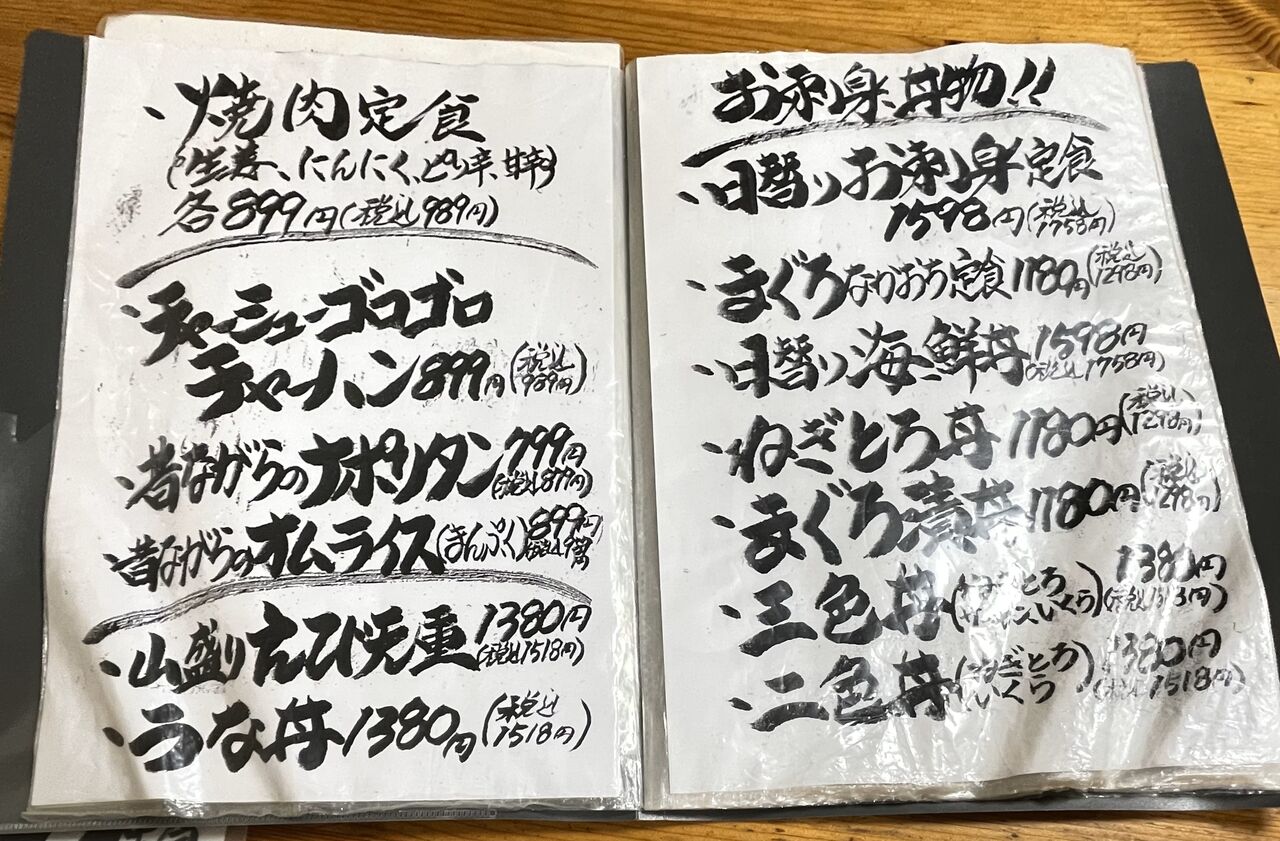 ・焼肉定食
(生姜、にんにく、ピリ辛、甘辛)
各899円(税込989円)
・チャーシューゴロゴロ
チャーハン899円(税込989円)
・昔ながらのナポリタン799円(税込879円)
・昔ながらのオムライス(まんぷく)899円(税込989円)
・山盛りえび天重1380円(税込1518円)
・うな丼1380円(税込1518円)
お刺身、丼物!!
・日替りお刺身定食
1598円(税込1758円)
・まぐろなりおち定食1180円(税込1298円)
・日替り海鮮丼1598円(税込1758円)
・ねぎとろ丼1180円(税込1298円)
・まぐろ漬丼1180円(税込1298円)
・三色丼(ねぎとろ いくら)1380円(税込1518円)
・二色丼(ねぎとろ いくら)1380円(税込1518円)